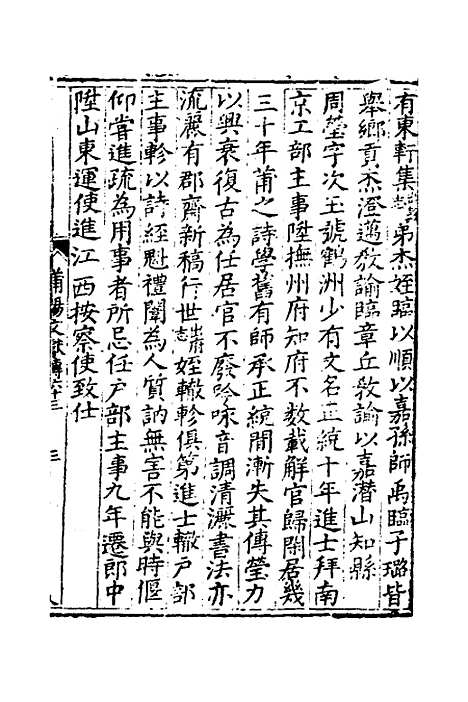 有東軒集弟杰姪臨以順以嘉孫師禹臨子璐皆
舉鄉貢杰澄邁教諭臨章丘教諭以嘉潜山知縣
周瑩字次玉號鶴洲少有文名正統十年進士拜南
京工部主事陞撫州府知府不数載解官歸閑居幾
三十年莆之詩學舊有師承正統間漸失其傳瑩力
以興衰復古為任居官不廢吟咏音調清㶑書法亦
流麗有郡齋新稿行世姪轍軫俱第進士轍戶部
主事軫以詩經魁禮闈為人質訥無害不能與時偃
仰嘗進疏為用事者所忌任戶部主事九年遷郎中
陞山東運使進江西按察使致仕
莆陽文獻傳六十三
三